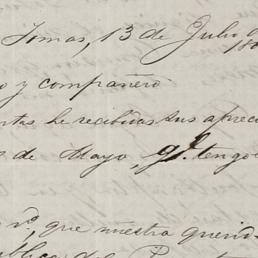 Tomas, 13 de Julio
18
y compañero
he recibidas sus aprec
de Mayo, qe. tengo
vd, que nuestro querid